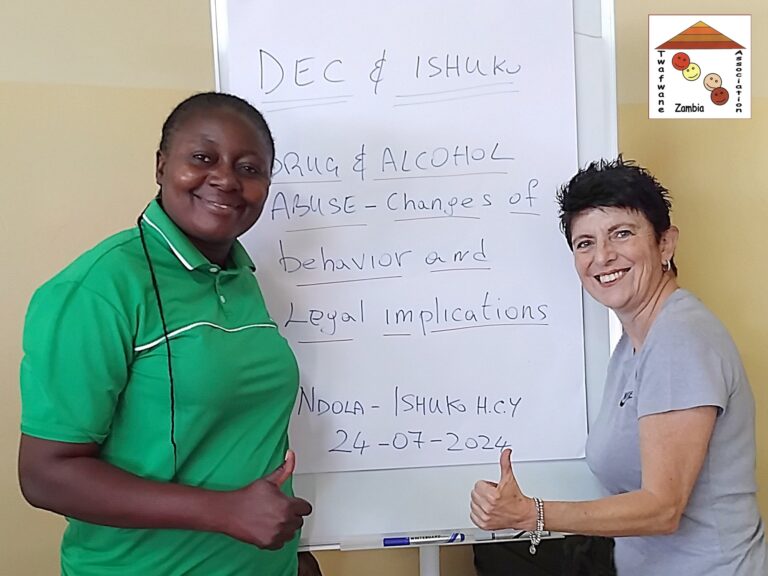 DEC & ISHUKO
DRUG & ALCOHOL
ABUSE - Changes of
behavior and
Legal implications
NDOLA - ISHUKO H.C.Y
24-07-2024
Twafwane
Zambia
Association
WHITEBOARD